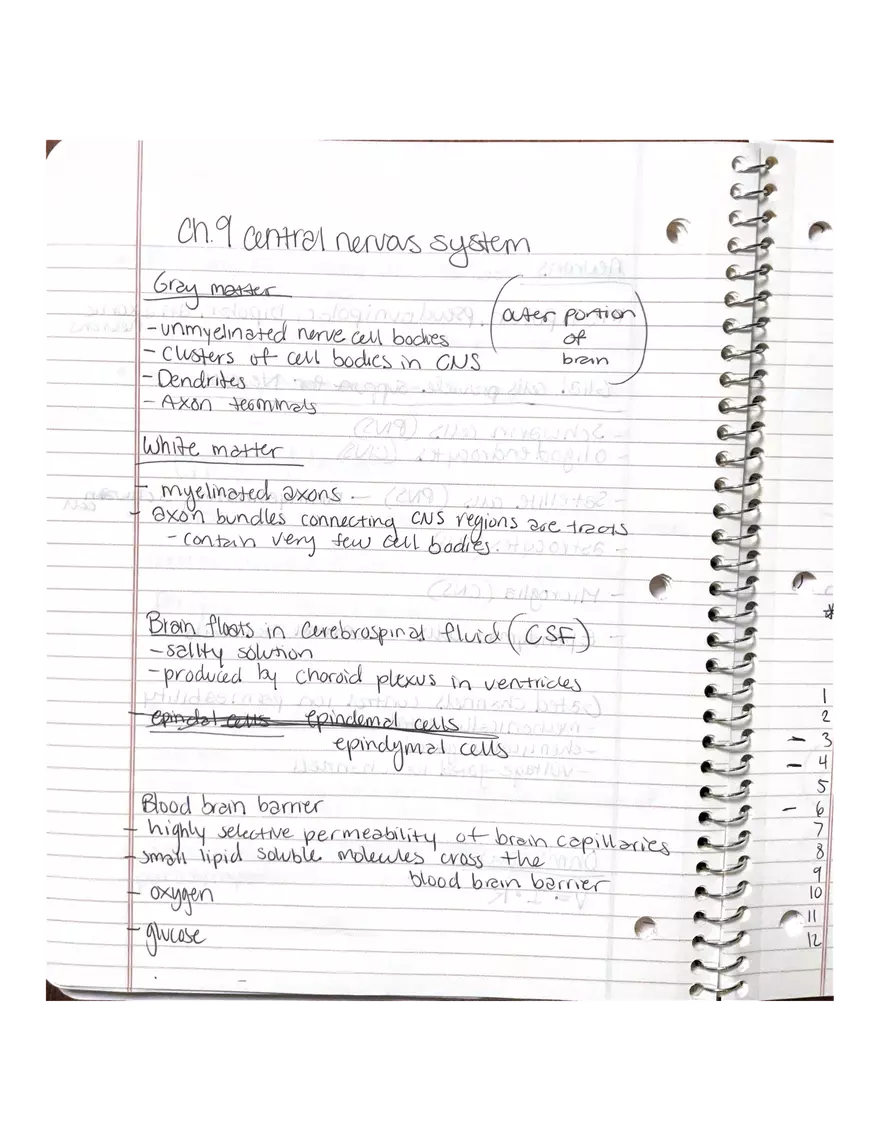 Ch.9 central nervas system
Gray matter
(outer portion
of
brain)
- unmyelinated nerve cell bodies
- clusters of cell bodies in CNS
- Dendrites
- Axon terminals
White matter
- myelinated axons.
- axon bundles connecting CNS regions are tracts
- contain very few cell bodies.
Brain floats in cerebrospinal fluid (CSF)
- sality solution
- produced by choroid plexus in ventricles
- epindal cells epindemal cells
epindymal cells
Blood brain barrier
- highly selective permeability of brain capillaries
- small lipid soluble molecules cross the
blood brain barrier
- oxygen
- glucose
*
1
2
- 3
- 4
5
- 6
7
8
9
10
11
12